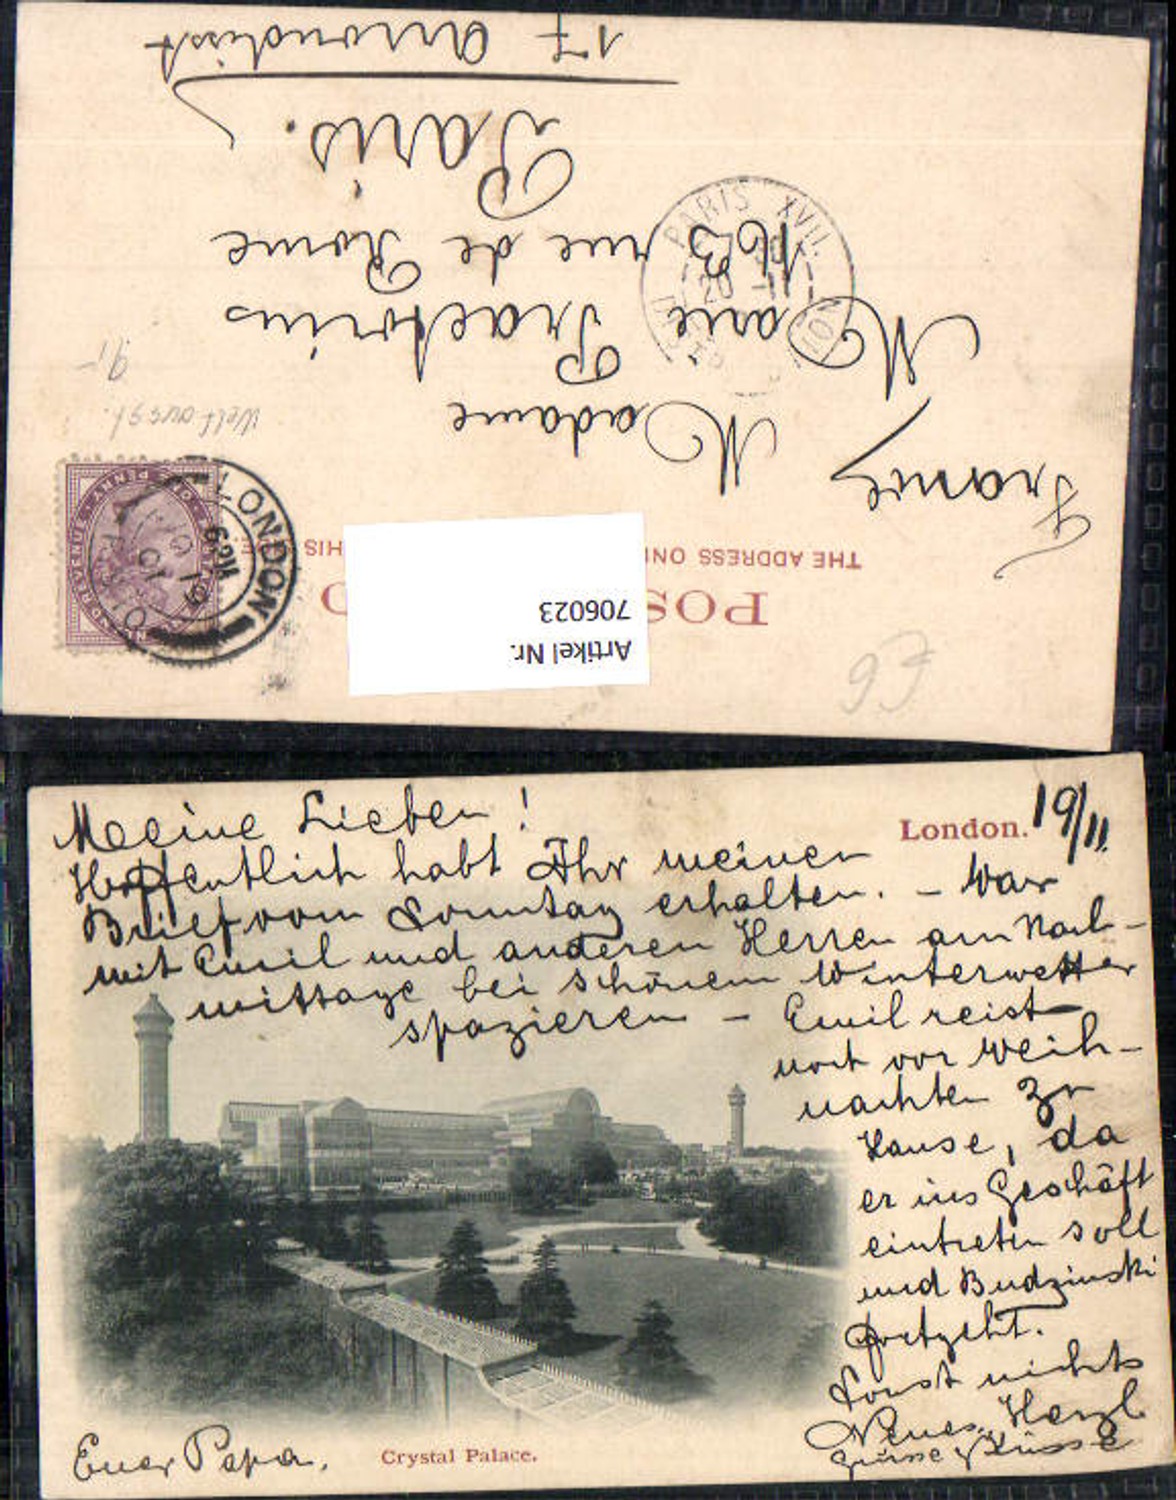 17 Arrondisst
Paris.
163 rue de Rome
Marie Praetorius
Madame
France
PARIS XVII.
20
Weltausst.
9,-
LONDON
NO 19
01
THE ADDRESS ON
HIS
POS
Artikel Nr.
706023
Meine Lieben!
London. 19/11.
Hoffentlich habt Ihr meinen
Brief vom Sonntag erhalten. – War
mit Emil und anderen Herren am Nach-
mittage bei schönem Winterwetter
spazieren – Emil reist
noch vor Weih-
nachten zu
Hause, da
er ins Geschäft
eintreten soll
und Budzinski
fortgeht.
Sonst nichts
Neues. Herzl
Grüsse & Küsse
Euer Papa.
Crystal Palace.